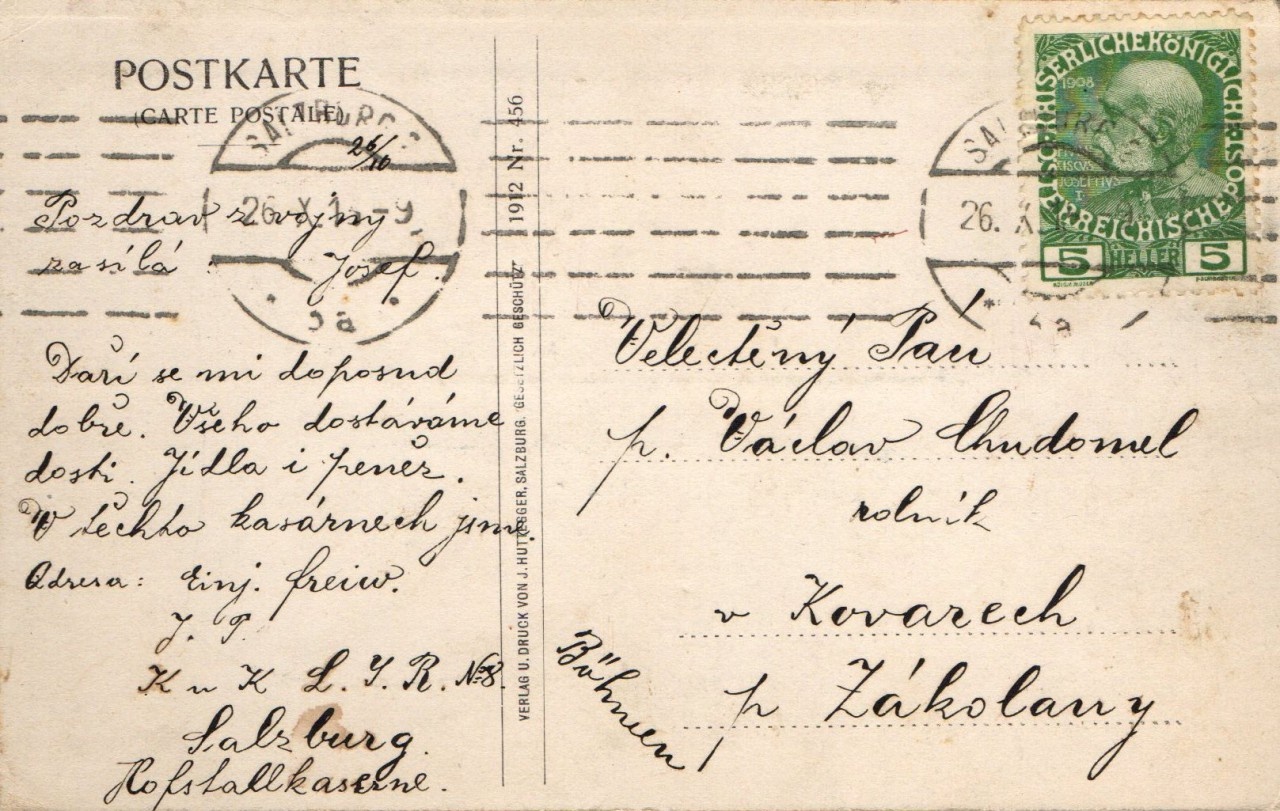 POSTKARTE
(CARTE POSTALE)
SALZBURG
26/10
26. X. 1 -9
5a
Pozdrav z vojny
zasílá Josef.
Daří se mi doposud
dobře. Všeho dostáváme
dosti. Jídla i peněz.
V těchto kasárnech jsme.
Adresa: Einj. freiw.
J. P.
K u K L. I. R. No 8.
Salzburg.
Hofstallkaserne.
VERLAG U. DRUCK VON J. HUTTEGGER, SALZBURG. GESETZLICH GESCHÜTZT 1912 Nr. 456
KAISERLICHE KÖNIGLICHE ÖSTERREICHISCHE
1908
JOSEPHVS
5 HELLER 5
SALZBURG
26. X
5a
Velectěný Pán
p. Václav Chudomel
rolník
v Kovarech
p Zákolany
Böhmen!